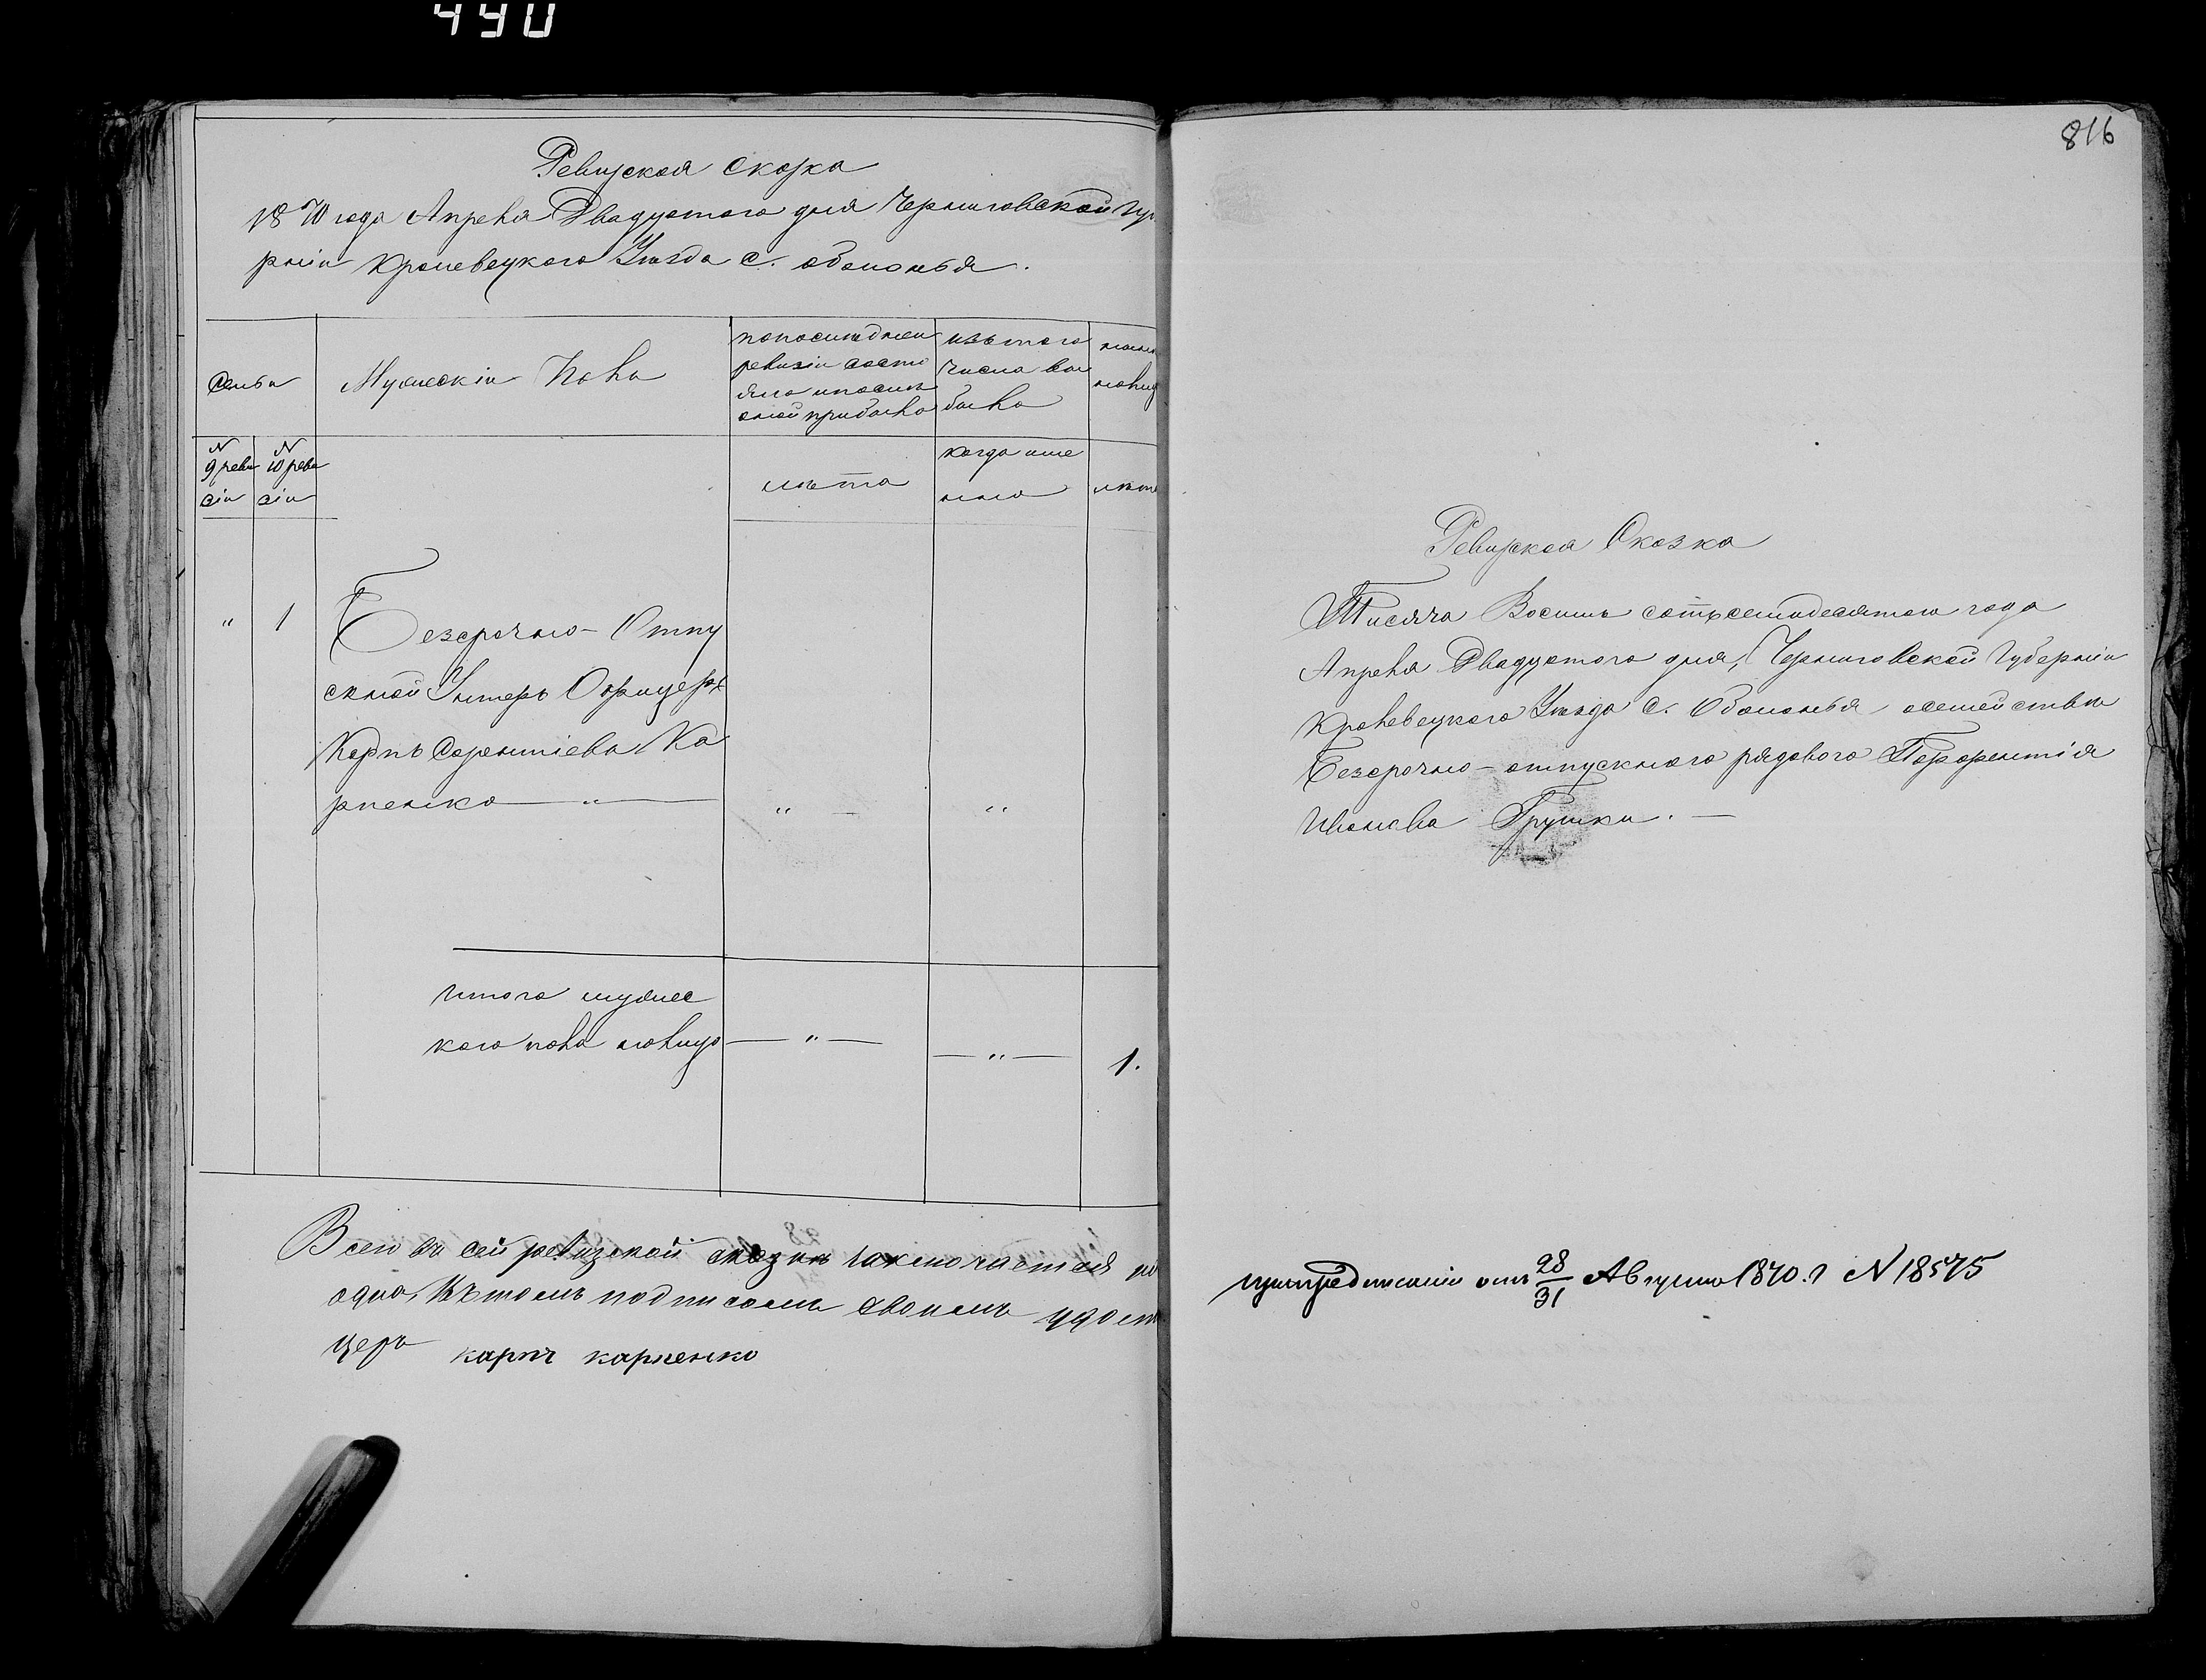 490
Ревизская сказка
1870 года Апреля Двадцатого дня Черниговской Гу
рніи Кролевецкого Уѣзда с. оболонья.
Семьи
Мужескій Полъ
по последней
ревизіи состо
яло и после
оной прибыло
изъ того
числа вы
было
налиц
N 9 реви зіи
N 10 реви зіи
лѣта
когда име
нно
лѣта
" 1 Безсрочно-Отпу
скной Унтеръ Офицеръ
Карпъ Терентіевъ Ка
рпенко — " — " — "
Итого мужес
кого пола налицо — " — — " — 1.
Всего въ сей ревизской сказкѣ заключается
одна, въ томъ подписомъ своимъ удост
церъ карпъ карпенко
816
Ревизская Сказка
Тисяча Восимъ сотъ семидесятого года
Апреля Двадцатого дня, Черниговской Губерніи
Кролевецкого Уѣзда с. Оболонья о семействѣ
Безсрочно-отпускного рядового Терентія
Иванова Грушки. —
при предписаніи отъ 28/31 Августа 1870. г N 18575